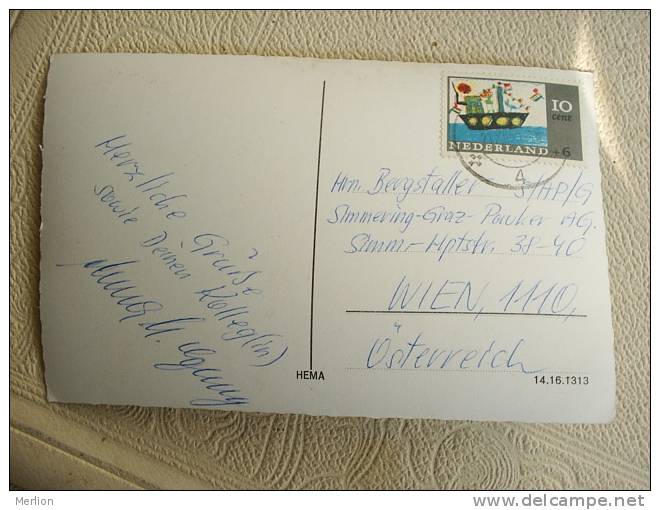 10
cent
NEDERLAND +6
4
Herzliche Grüße
sowie Deinen Kolleg(in)
Hrn. Bergstaller
Simmering-Graz-Pauker AG.
Simm-Hptstr. 38-40
WIEN, 1110,
Österreich
HEMA
14.16.1313
Merlion
www.delcampe.net